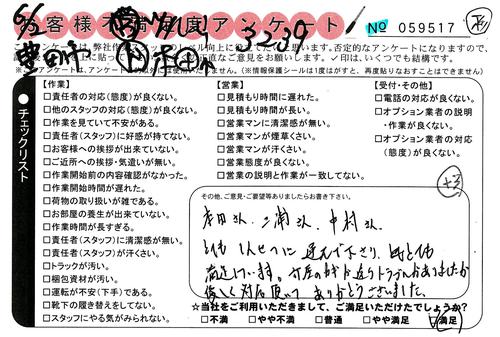 お客様不満度アンケート
№ 059517
3239
このアンケートは、弊社作業スタッフのレベル向上に役立てたいと思います。否定的なアンケートになりますので、
直接ご意見をお願いいたします。✓印は、いくつでも結構です。
(※情報保護シールは1度はがすと、再度貼りなおすことはできません)
●チェックリスト
【作業】
□責任者の対応(態度)が良くない。
□他のスタッフの対応(態度)が良くない。
□作業を見ていて不安がある。
□責任者(スタッフ)に好感が持てない。
□お客様への挨拶が出来ていない。
□ご近所への挨拶・気遣いが無い。
□作業開始前の内容確認がなかった。
□作業開始時間が遅れた。
□荷物の取り扱いが雑である。
□お部屋の養生が出来ていない。
□作業時間が長すぎる。
□責任者(スタッフ)に清潔感が無い。
□責任者(スタッフ)が汗くさい。
□トラックが汚い。
□梱包資材が汚い。
□運転が不安(下手)である。
□靴下の履き替えをしてない。
□スタッフにやる気がみられない。
【営業】
□見積もり時間に遅れた。
□見積もり時間が長い。
□営業マンに清潔感が無い。
□営業マンが煙草くさい。
□営業マンが汗くさい。
□営業態度が良くない。
□営業の説明と作業が一致してない。
【受付・その他】
□電話の対応が良くない。
□オプション業者の説明
・作業が良くない。
□オプション業者の対応
(態度)が良くない。
その他、ご意見・ご要望等ありましたらお書き下さい。
本田さん、三浦さん、中村さん
とても しんせつに 運んで下さり、
満足しています。
優しく対応頂いて ありがとうございました。
☆当社をご利用いただきまして、ご満足いただけたでしょうか?
□不満 □やや不満 □普通 □やや満足 ☑満足